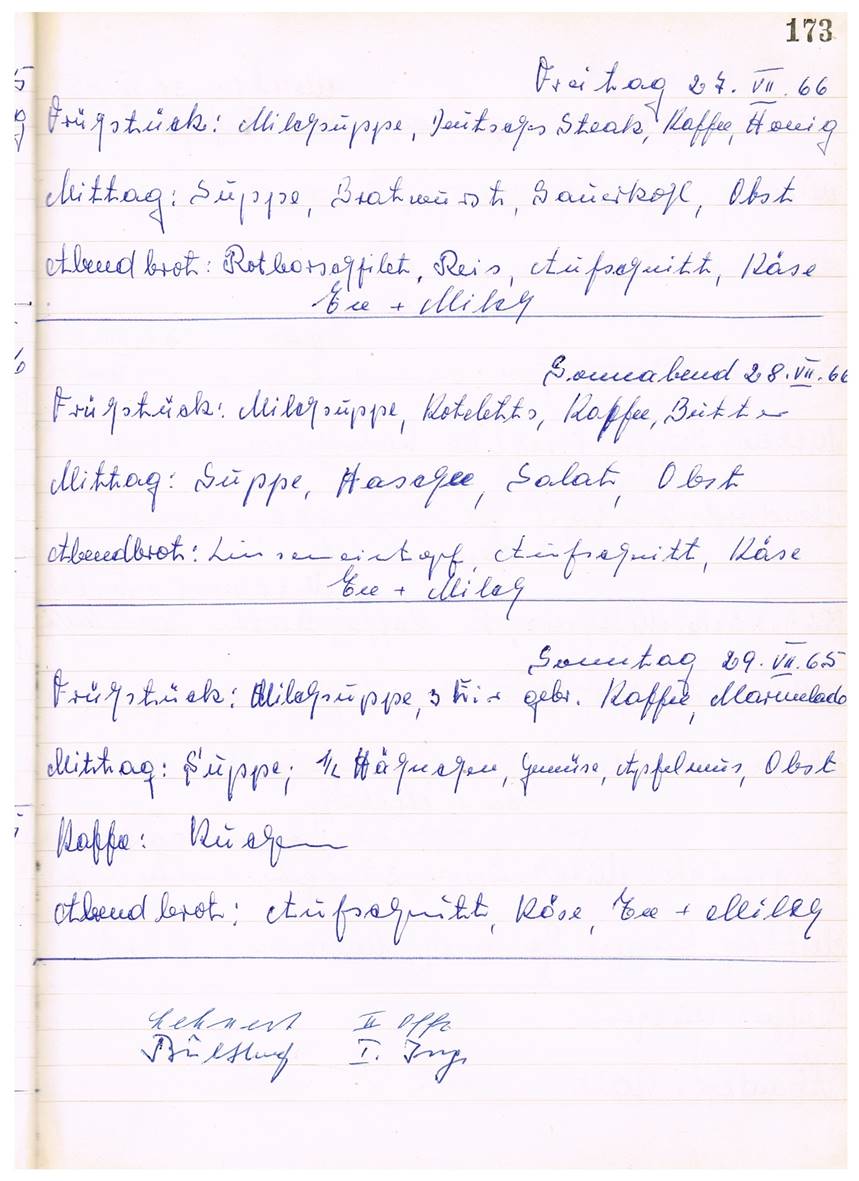 173
Freitag 27. VII. 66
Frühstück: Milchsuppe, Deutsches Steak, Kaffee, Honig
Mittag: Suppe, Bratwurst, Sauerkohl, Obst
Abendbrot: Rotbarschfilet, Reis, Aufschnitt, Käse
Tee + Milch
Sonnabend 28. VII. 66
Frühstück: Milchsuppe, Koteletts, Kaffee, Butter
Mittag: Suppe, Haschee, Salat, Obst
Abendbrot: Linseneintopf, Aufschnitt, Käse
Tee + Milch
Sonntag 29. VII. 65
Frühstück: Milchsuppe, 3 Eier gebr. Kaffee, Marmelade
Mittag: Suppe; 1/2 Hähnchen, Gemüse, Apfelmus, Obst
Kaffee: Kuchen
Abendbrot: Aufschnitt, Käse, Tee + Milch
Lehnert II Offz
I. Ing.